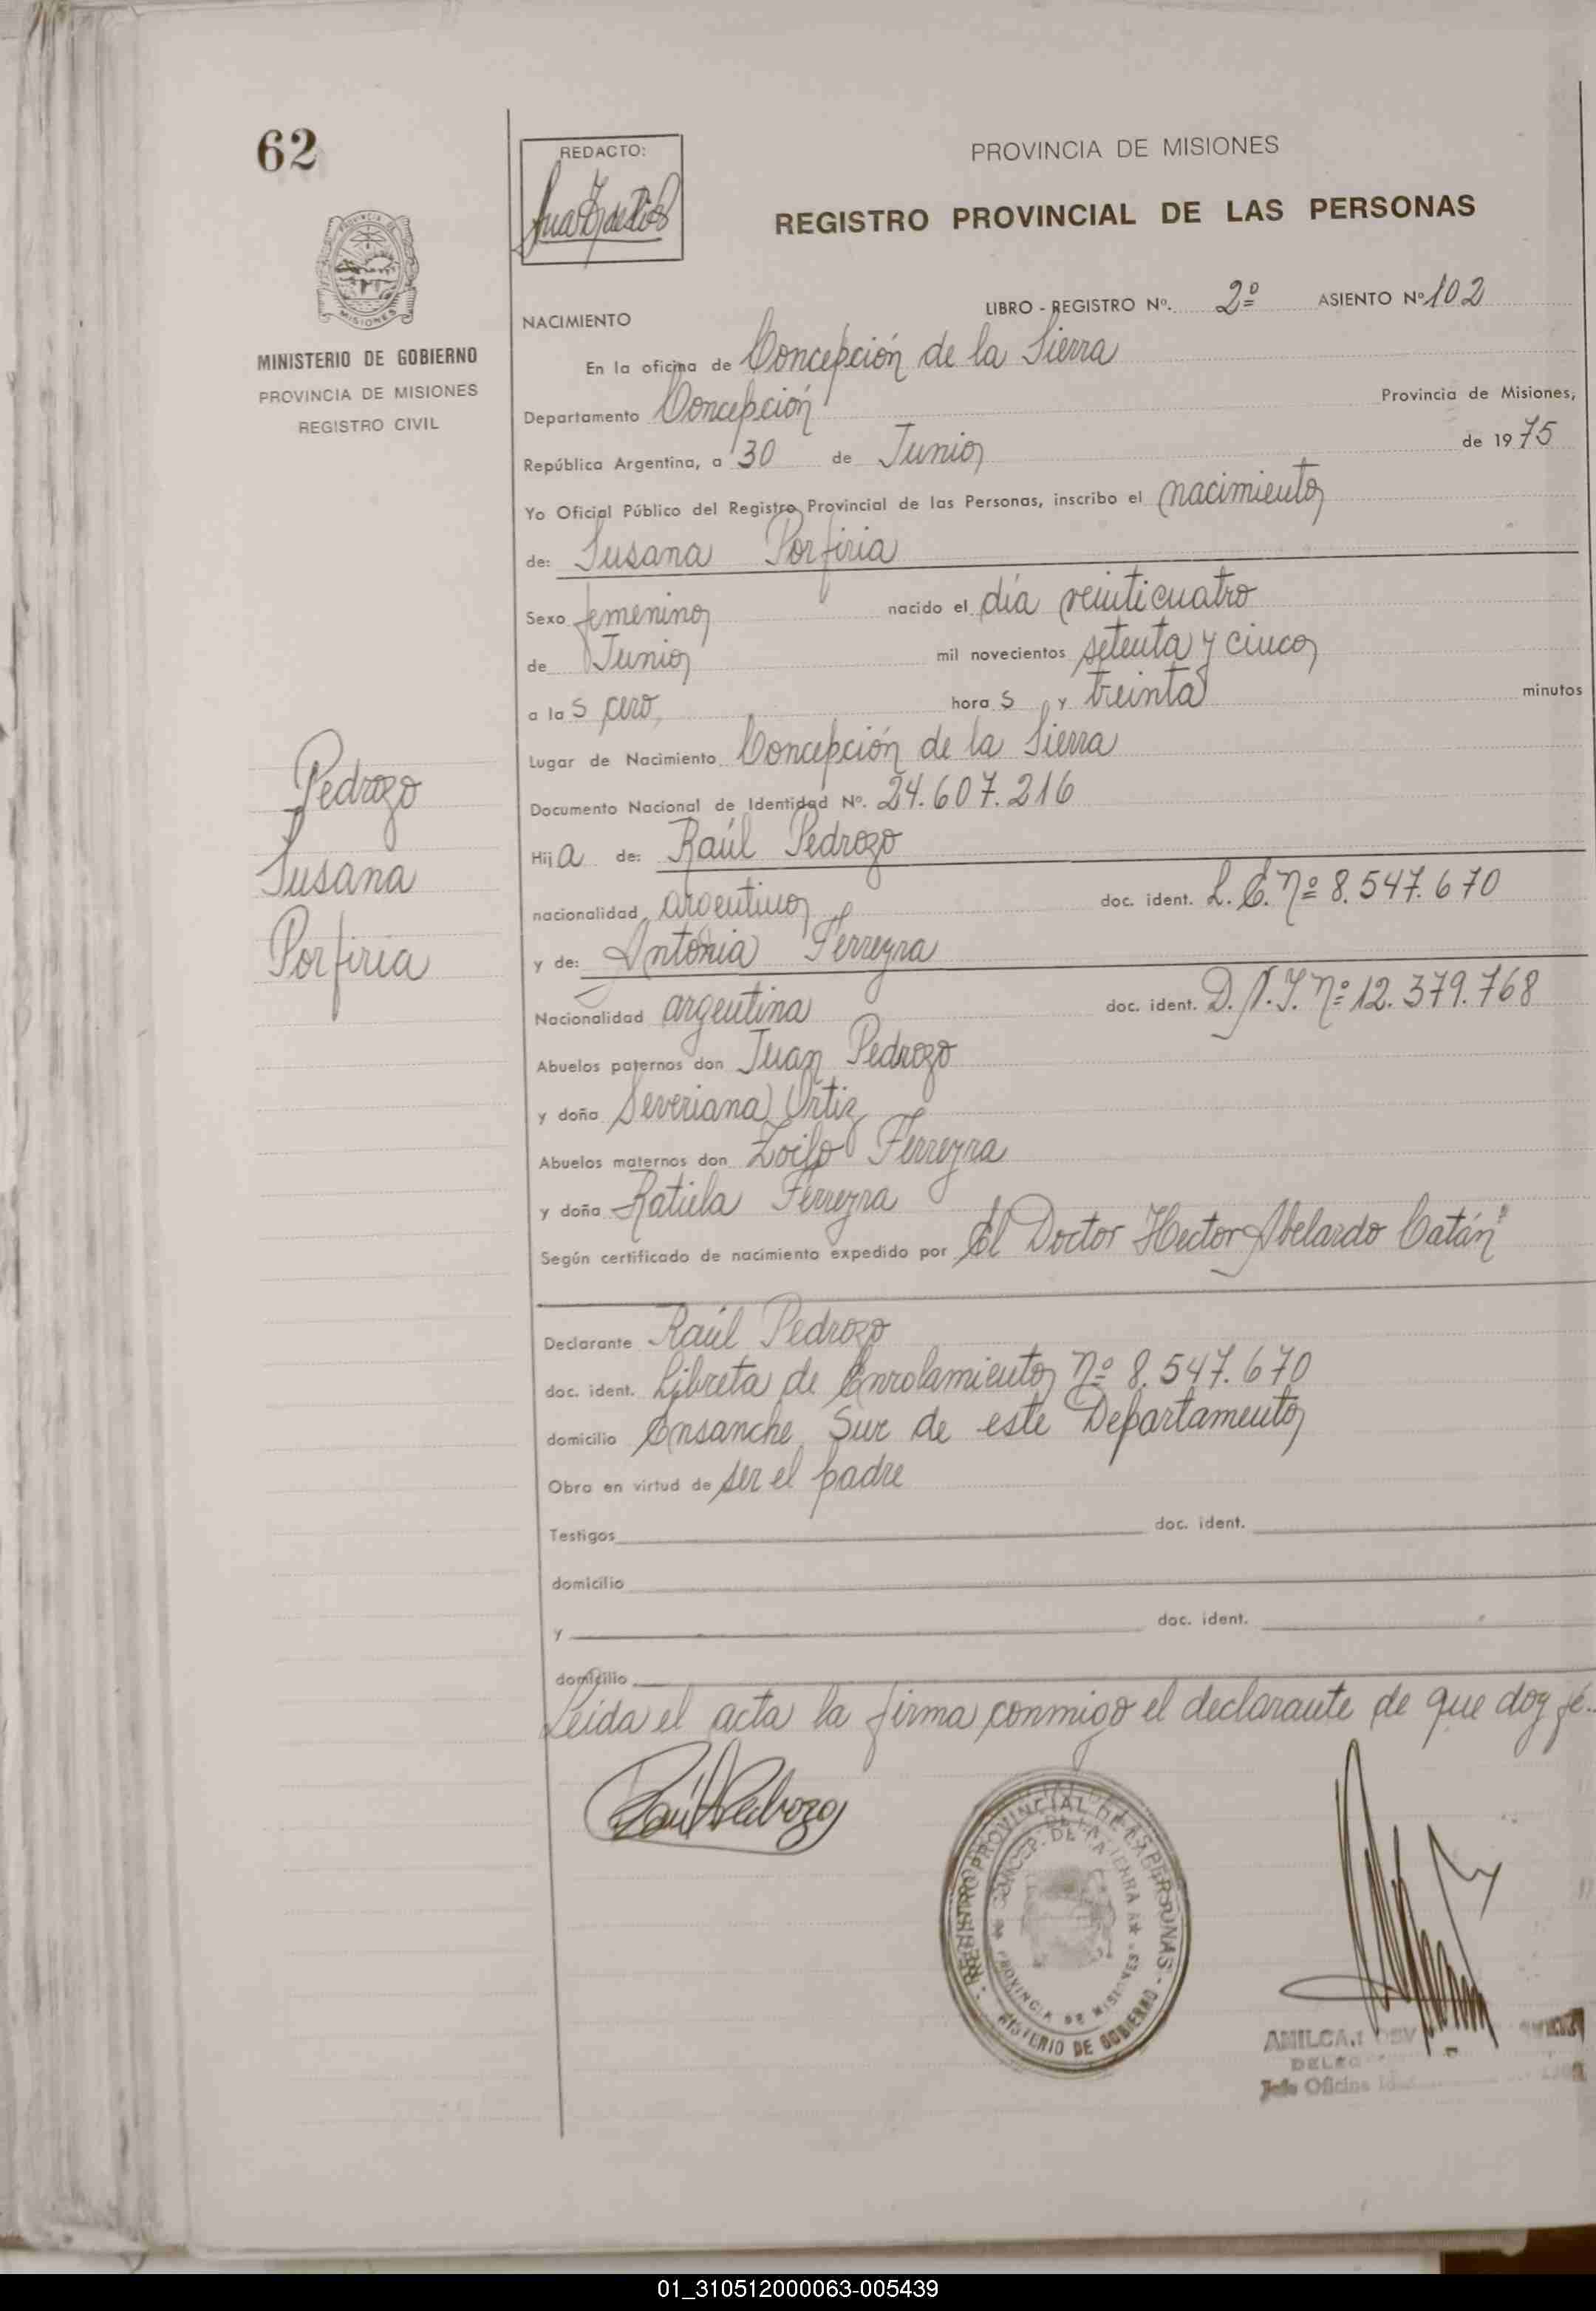 62
REDACTO:
PROVINCIA DE MISIONES
REGISTRO PROVINCIAL DE LAS PERSONAS
PROVINCIA
MISIONES
MINISTERIO DE GOBIERNO
PROVINCIA DE MISIONES
REGISTRO CIVIL
LIBRO - REGISTRO Nº. 2º ASIENTO Nº 102
NACIMIENTO
En la oficina de Concepción de la Sierra
Departamento Concepción Provincia de Misiones,
República Argentina, a 30 de Junio de 1975
Yo Oficial Público del Registro Provincial de las Personas, inscribo el nacimiento
de: Susana Porfiria
Sexo femenino nacido el día veinticuatro
de Junio mil novecientos setenta y cinco
a las cero horas y treinta minutos
Lugar de Nacimiento Concepción de la Sierra
Documento Nacional de Identidad Nº. 24.607.216
Hija de: Raúl Pedrozo
nacionalidad argentino doc. ident. L.E. Nº 8.547.670
y de: Antonia Ferreyra
Nacionalidad argentina doc. ident. D.N.I. Nº 12.379.768
Abuelos paternos don Juan Pedrozo
y doña Severiana Ortiz
Abuelos maternos don Zoilo Ferreyra
y doña Ferreyra
Según certificado de nacimiento expedido por El Doctor Hector Abelardo Catán
Pedrozo
Susana
Porfiria
Declarante Raúl Pedrozo
doc. ident. Libreta de Enrolamiento Nº 8.547.670
domicilio Ensanche Sur de este Departamento
Obra en virtud de ser el padre
Testigos doc. ident.
domicilio
y doc. ident.
domicilio
Leída el acta la firma conmigo el declarante de que doy fé.
Raúl Pedrozo
REGISTRO PROVINCIAL DE LAS PERSONAS
CONCEP. DE LA SIERRA
PROVINCIA DE MISIONES
MINISTERIO DE GOBIERNO
Jefe Oficina
01_310512000063-005439